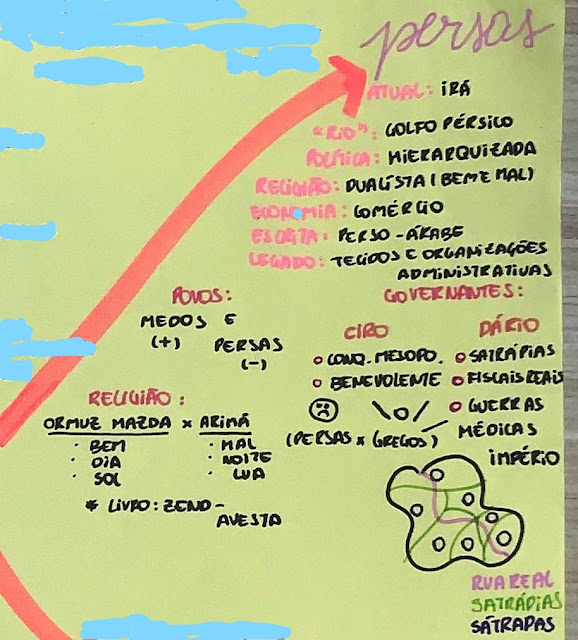 persas
ATUAL: IRÃ
"RIO": GOLFO PÉRSICO
POLÍTICA: HIERARQUIZADA
RELIGIÃO: DUALÍSTA (BEM E MAL)
ECONOMIA: COMÉRCIO
ESCRITA: PERSO-ÁRABE
LEGADO: TECIDOS E ORGANIZAÇÕES
ADMINISTRATIVAS
POVOS:
MEDOS E
(+)
PERSAS
(-)
GOVERNANTES:
CIRO
CONQ. MESOPO.
BENEVOLENTE
DÁRIO
SATRÁPIAS
FISCAIS REAIS
GUERRAS
MÉDICAS
(PERSAS x GREGOS)
RELIGIÃO:
ORMUZ MAZDA x ARIMÃ
· BEM · MAL
· DIA · NOITE
· SOL · LUA
* LIVRO: ZEND-
AVESTA
IMPÉRIO
RUA REAL
SATRÁPIAS
SÁTRAPAS